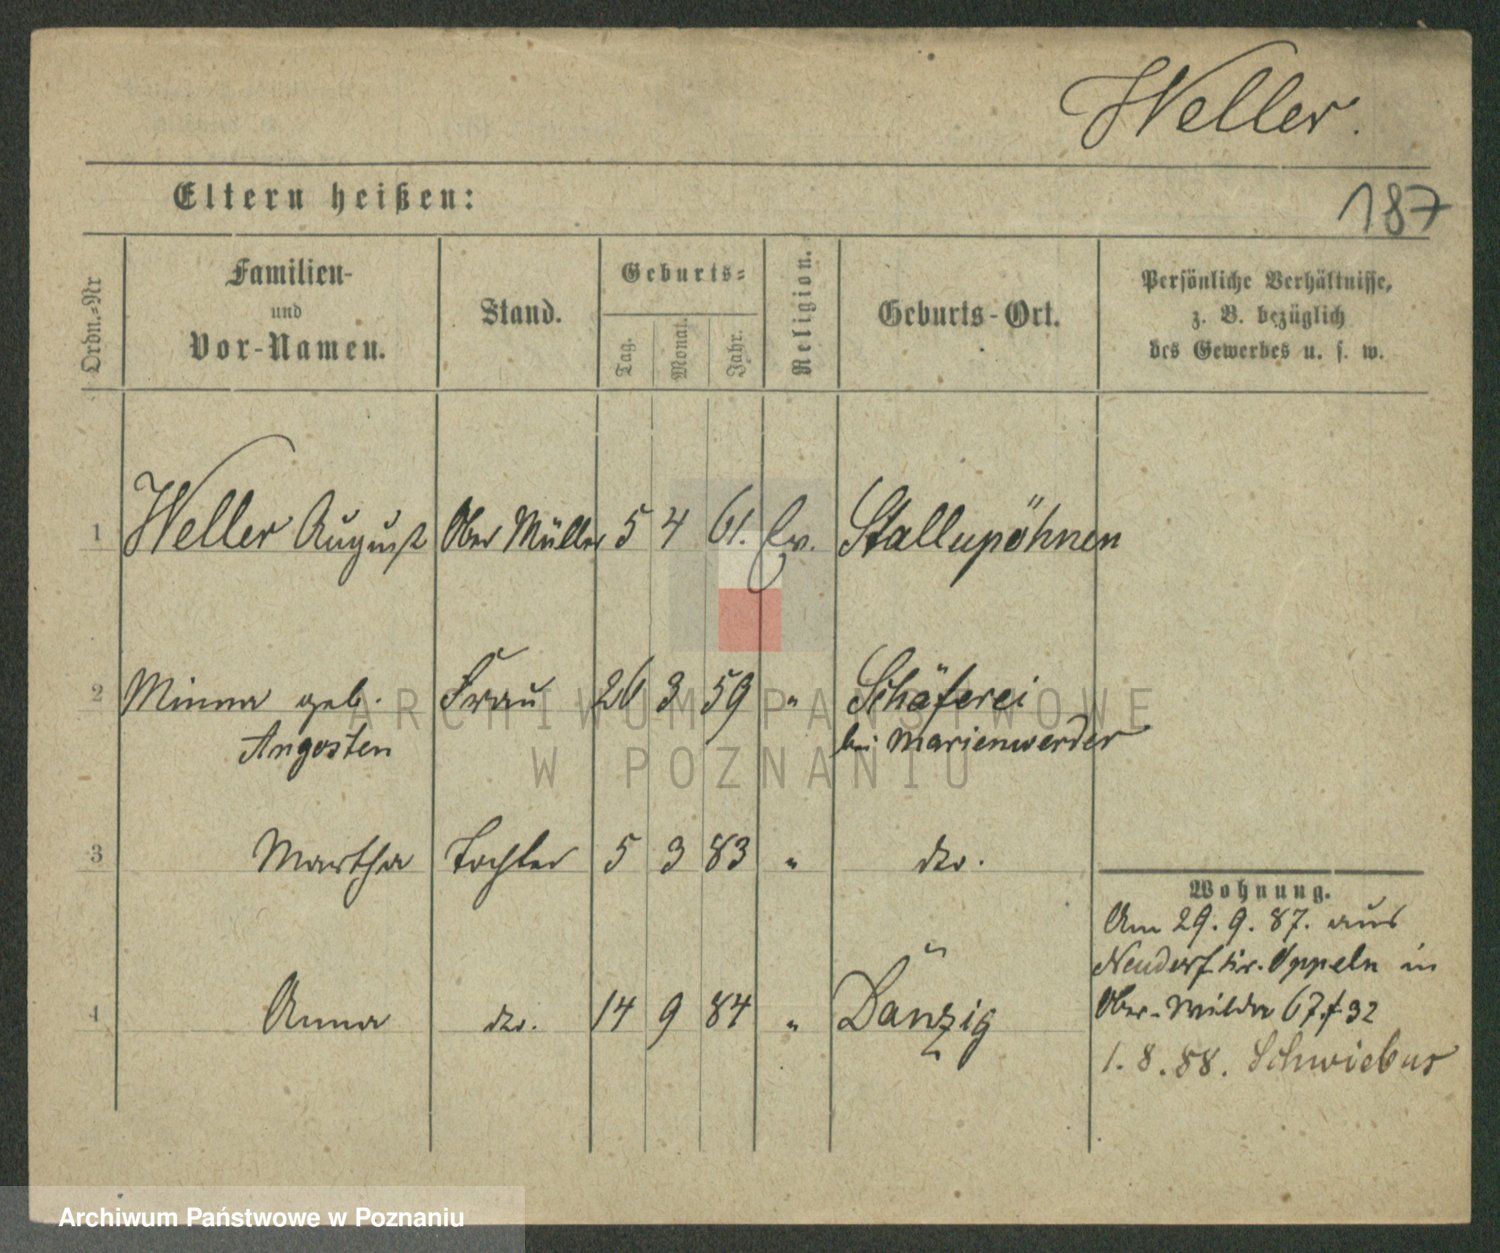 Weller.
187
Eltern heißen:
Ordn.-Nr
Familien-
und
Vor-Namen.
Stand.
Geburts-
Tag.
Monat.
Jahr.
Religion.
Geburts-Ort.
Persönliche Verhältnisse,
z. B. bezüglich
des Gewerbes u. s. w.
1 Weller August Ober Müller 5 4 61. Ev. Stallupöhnen
2 Minna geb. Frau 26 3 59 " Schäferei
Angosten bei Marienwerder
3 Martha Tochter 5 3 83 " dto.
4 Anna dto. 14 9 84 " Danzig
Wohnung.
Am 29. 9. 87. aus
Neudorf kr. Oppeln in
Ober-Wilda 67.f 32
1. 8. 88. Schwiebus
ARCHIWUM PAŃSTWOWE
W POZNANIU
Archiwum Państwowe w Poznaniu